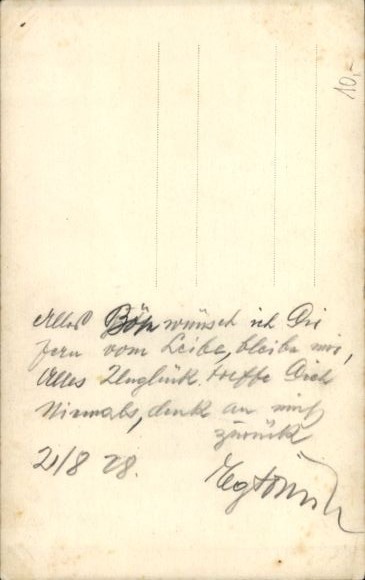 10,-
Alles Böse wünsch ich Dir
fern vom Leibe, bleibe mir,
Alles Unglück treffe Dich
Niemals, denk an mich
zurück
21/8 28.